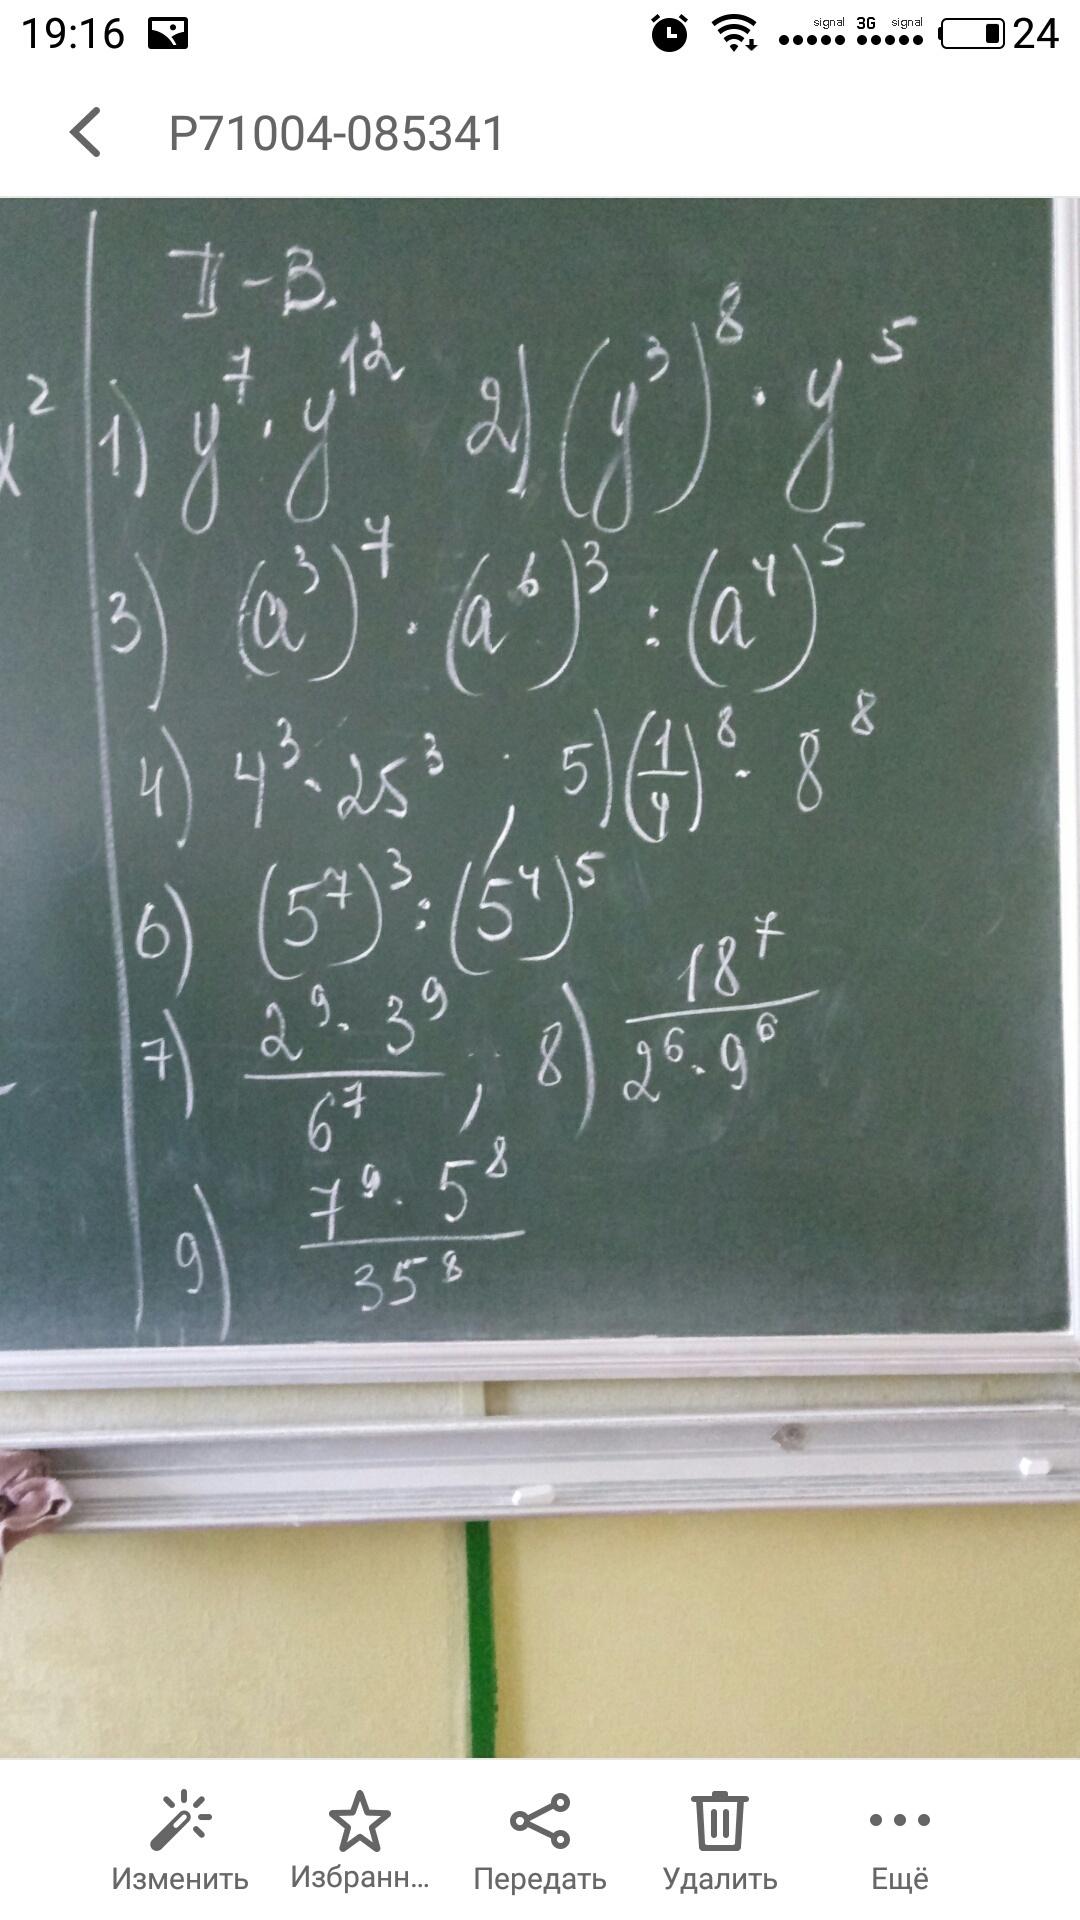 19:16 signal 3G signal 24
P71004-085341
II-В.
x² 1) y⁷ · y¹² 2) (y³)⁸ · y⁵
3) (a³)⁷ · (a⁶)³ : (a⁴)⁵
4) 4³ · 25³ ; 5) (1/4)⁸ · 8⁸
6) (5⁷)³ : (5⁴)⁵
7) 2⁹ · 3⁹ / 6⁷ ; 8) 18⁷ / 2⁶ · 9⁶
9) 7⁹ · 5⁸ / 35⁸
Изменить Избранн... Передать Удалить Ещё